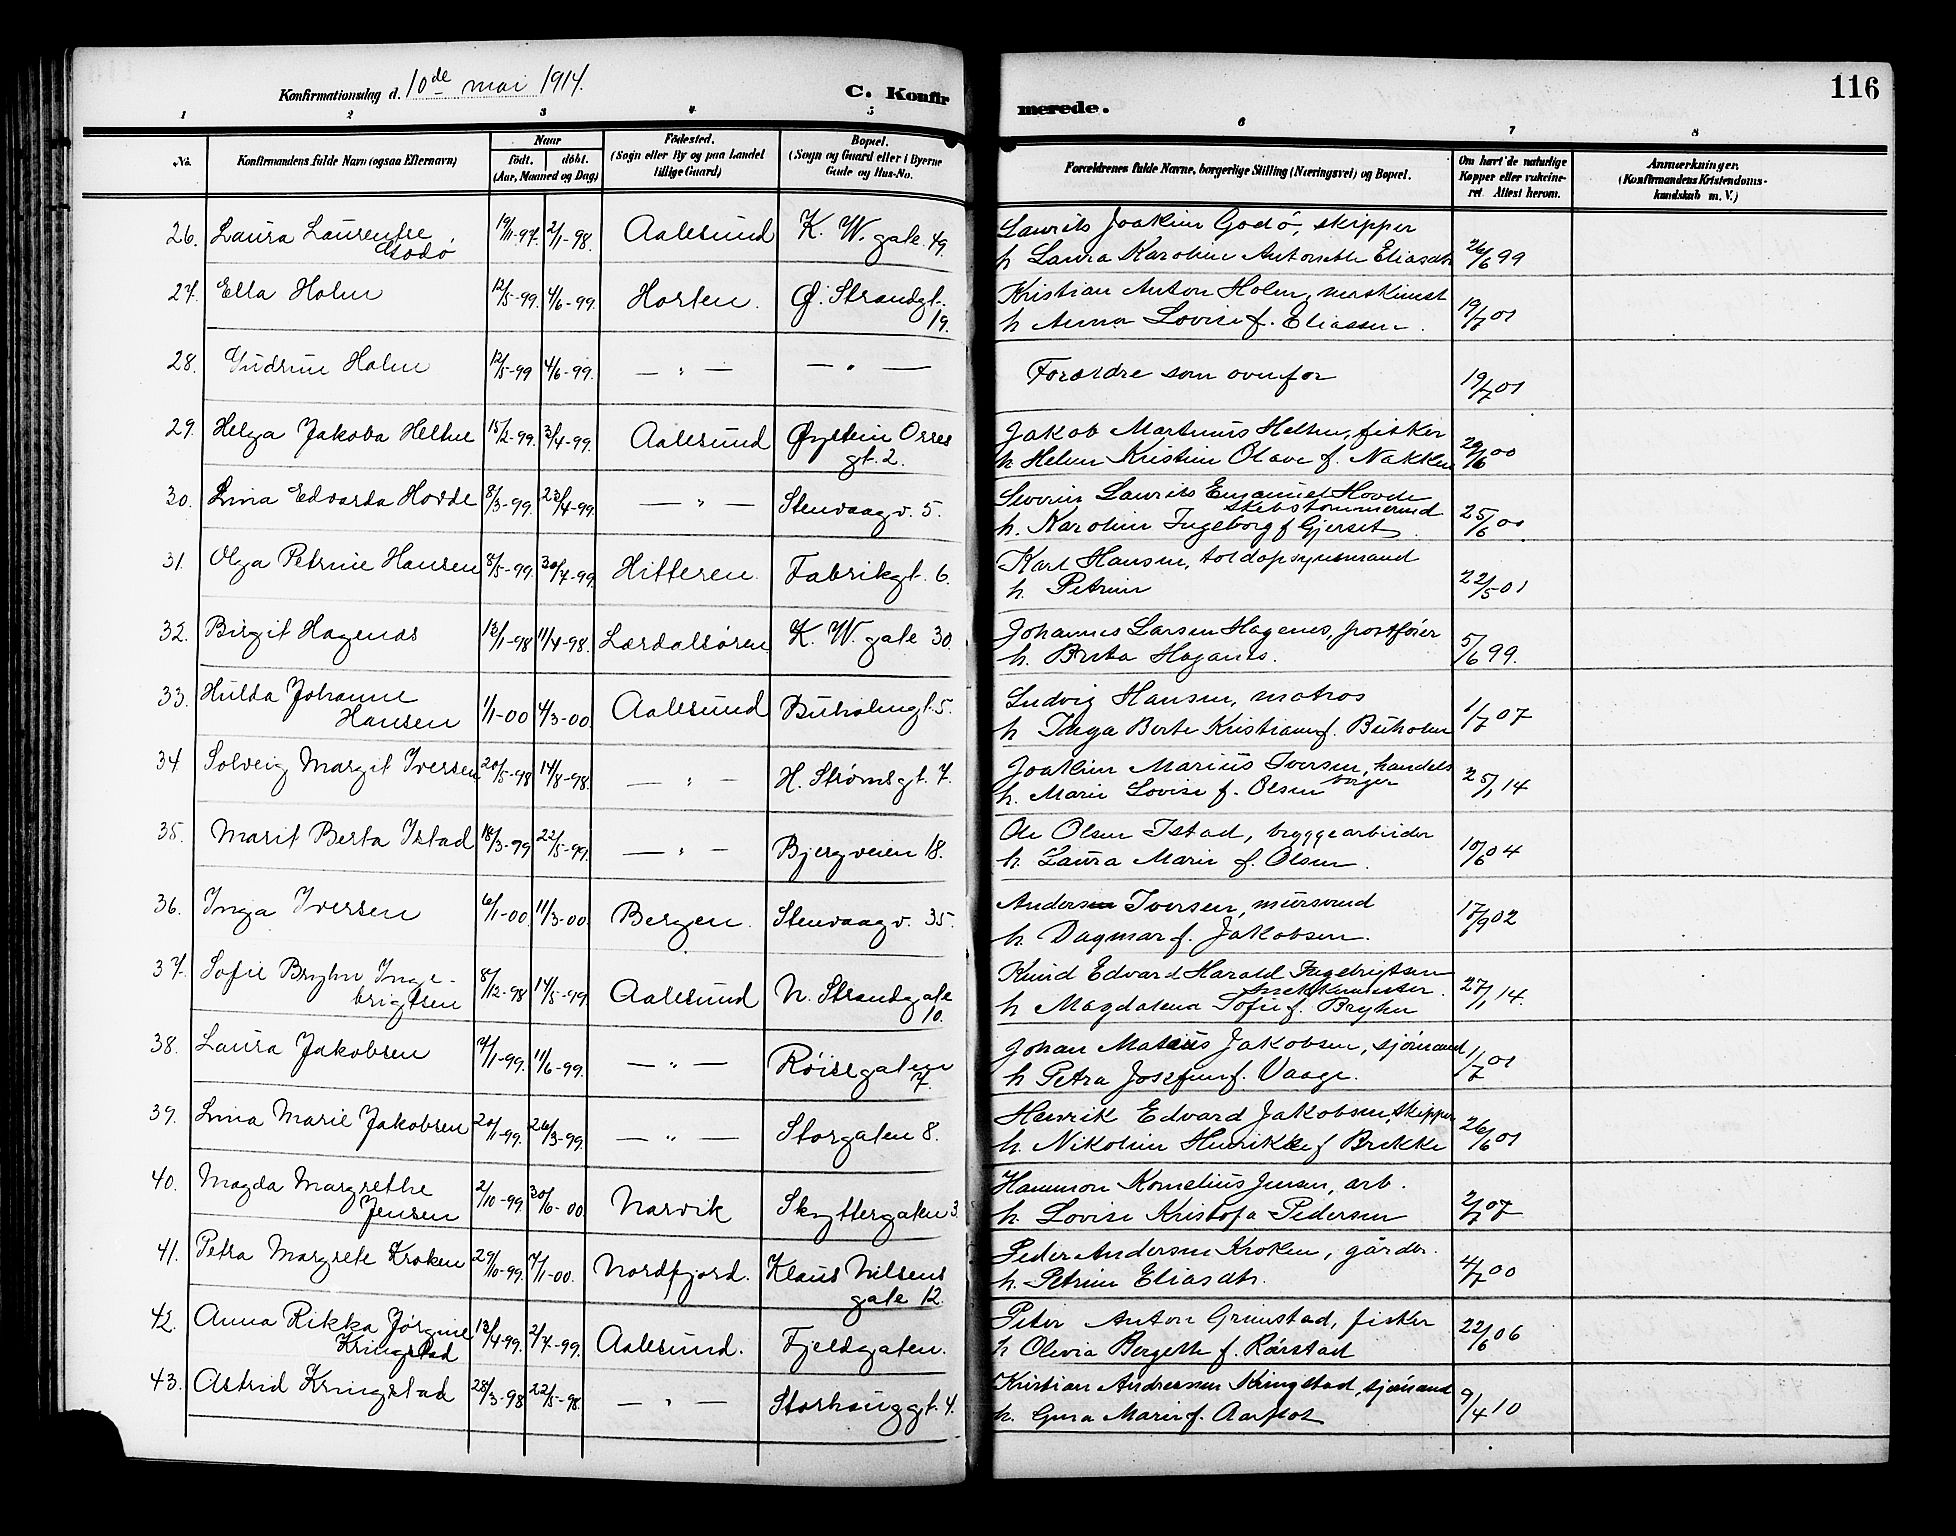 Konfirmationsdag d. 10de mai 1914.
C. Konfirmerede.
116
1 2 3 4 5 6 7 8
No.
Konfirmandens fulde Navn (ogsaa Efternavn)
Naar
født. døbt.
(Aar, Maaned og Dag)
Fødested.
(Sogn eller By og paa Landet
tillige Gaard)
Bopæl.
(Sogn og Gaard eller i Byerne
Gade og Hus-No.
Forældrenes fulde Navne, borgerlige Stilling (Næringsvei) og Bopæl.
Om havt de naturlige
Kopper eller vakcine-
ret Attest herom.
Anmærkninger.
(Konfirmandens Kristendoms-
kundskab m. V.)
26. Laura Laurentse Godø 19/11-97. 2/1-98. Aalesund K. W. gate 49.
Laurits Joakim Godø, skipper
h Laura Karoline Antonette Eliasdtr 26/6 99
27. Ella Holm 12/5-99. 4/6-99. Horten. Ø. Strandgt. 19.
Kristian Anton Holm, maskinist
h Anna Lovise f. Eliassen. 19/7 01
28. Gudrun Holm 12/5-99 4/6-99. — " — — " —
Forældre som ovenfor 19/7 01
29. Helga Jakoba Heltne 15/2-99. 3/4-99. Aalesund Øystein Orres gt. 2.
Jakob Martinus Heltne, fisker
h Heline Kristine Olave f. Nakken 29/6 00
30. Lina Edvarda Hovde 8/3-99. 23/4-99. — " — Stenvaagv. 5.
Severin Laurits Emanuel Hovde
skibstømmermd
h. Karoline Ingeborg f Gjerset 25/6 00
31. Olga Petrine Hansen 8/5-99. 30/7-99 Hitteren. Fabrikgt. 6.
Karl Hansen, toldopsynsmand
h. Petrine 22/5 01
32. Birgit Hagenæs 13/1-98 11/4-98. Lærdalsøren K. W. gate 30.
Johannes Larsen Hagenes, postfører
h. Brita Haganes. 5/6 99.
33. Hulda Johanne Hansen 1/1-00 4/3-00. Aalesund Buholmgt. 5.
Ludvig Hansen, matros
h Inga Berte Kristiane f. Buholm 1/7 07
34 Solveig Margit Iversen 20/5-98 14/8-98. — " — H. Strømsgt. 7.
Joakim Marius Iversen, handels
borger
h. Marie Lovise f. Olsen 25/1 14
35. Marit Berta Istad 18/3-99 22/5-99. — " — Bjergveien 18.
Ole Olsen Istad, bryggearbeider
h. Laura Marie f. Olsen. 10/6 04
36. Inga Iversen 6/1-00 11/3-00. Bergen. Stenvaagv. 35.
Anders Iversen, mursvend
h. Dagmar f. Jakobsen. 17/9 02
37. Sofie Bryhn Inge-
brigtsen 8/12-98 14/5-99 Aalesund N. Strandgate 10.
Knud Edvard Harald Ingebrigtsen
snekkermester.
h Magdalena Sofie f. Bryhn 27/1 14.
38. Laura Jakobsen 7/1-99. 11/6-99. — " — Røisegaten 7.
Johan Matius Jakobsen, sjømand
h Petra Josefine f. Vaage. 1/7 01
39. Lina Marie Jakobsen 20/1-99. 26/3-99. — " — Storgaten 8.
Henrik Edvard Jakobsen, skipper
h. Nikoline Henrikke f Brekke 26/6 01
40. Magda Margrethe Jensen 2/10-99. 30/6-00 Narvik Skyttergaten 3.
Hammon Kornelius Jensen, arb.
h. Lovise Kristofa Pedersen 2/7 07
41. Petra Margrete Kroken 29/10-99. 7/1-00. Nordfjord. Klaus Nilsens gate 12.
Peder Andersen Kroken, gårdbr.
h. Petrine Eliasdtr. 4/7 00
42. Anna Rikka Jørgine Kringstad 13/4-99. 2/7-99. Aalesund. Fjeldgaten.
Peter Anton Grimstad, fisker
h Olivia Bergette f. Rørstad 22/6 06
43. Astrid Kringstad 28/3-98 22/5-98. — " — Storhauggt. 4.
Kristian Andreassen Kringstad, sjømand
h. Gina Marie f. Aarflot 9/4 10